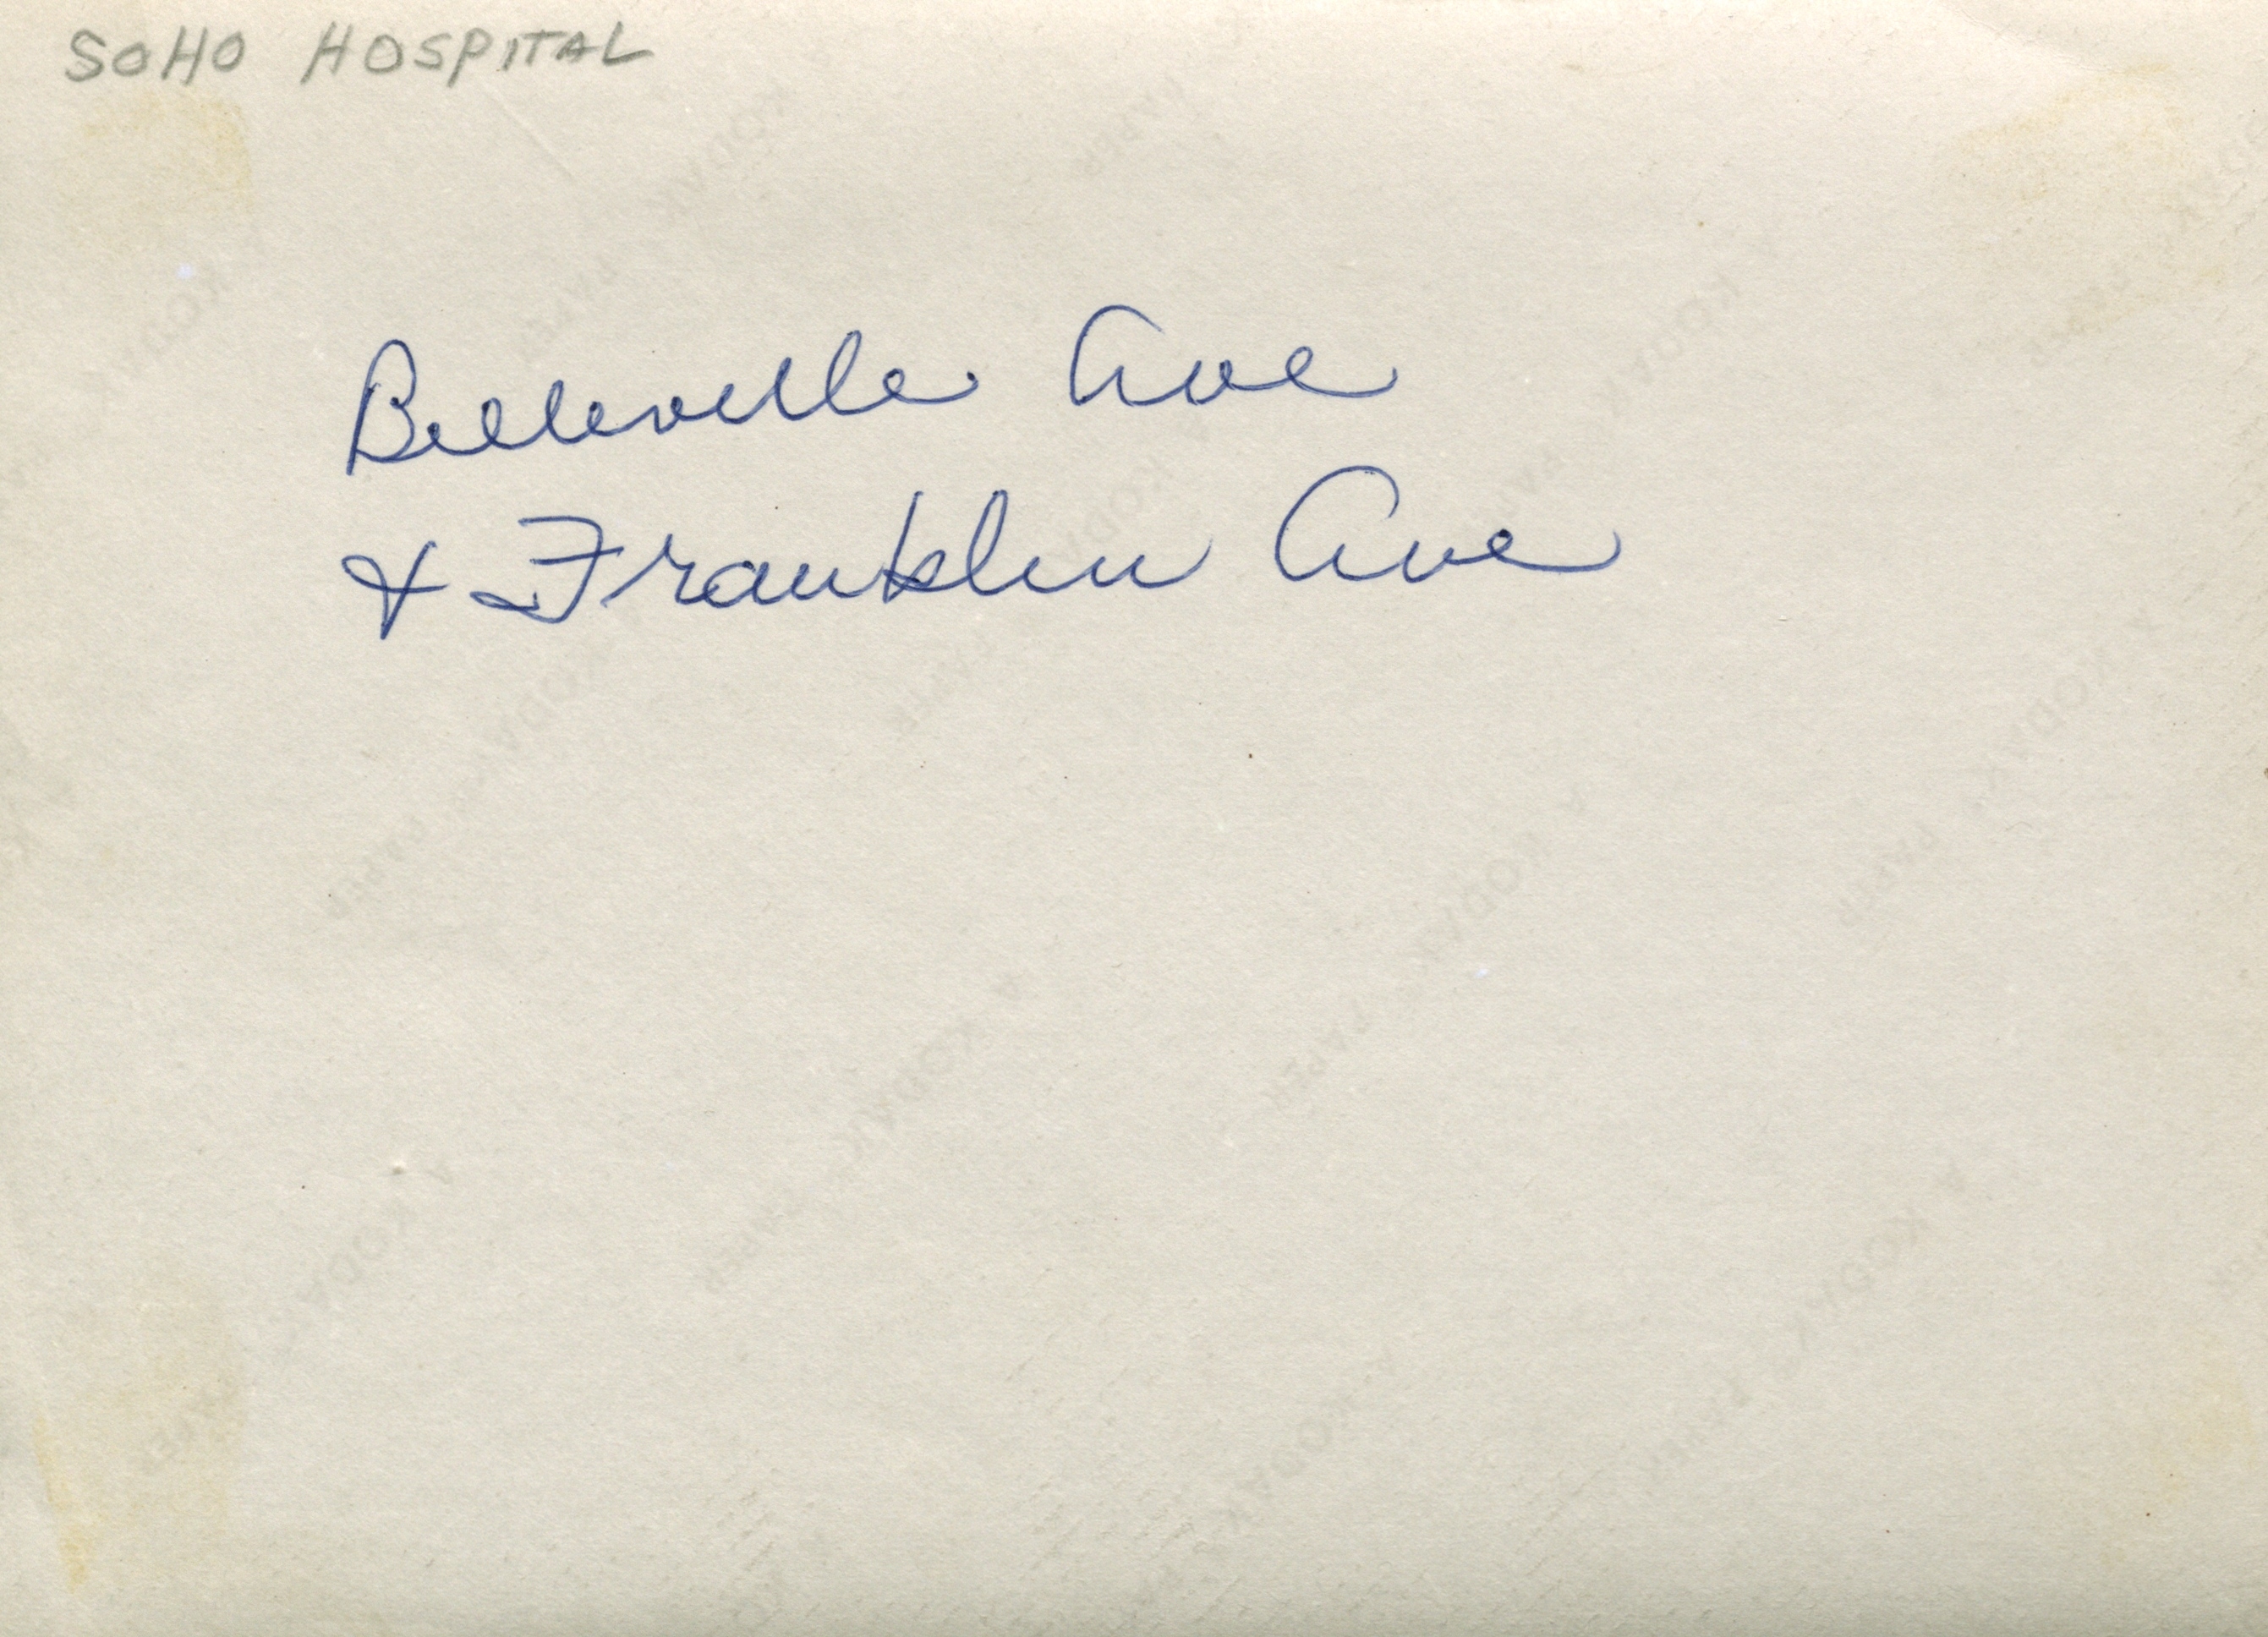 SOHO HOSPITAL
Belleville Ave
& Franklin Ave